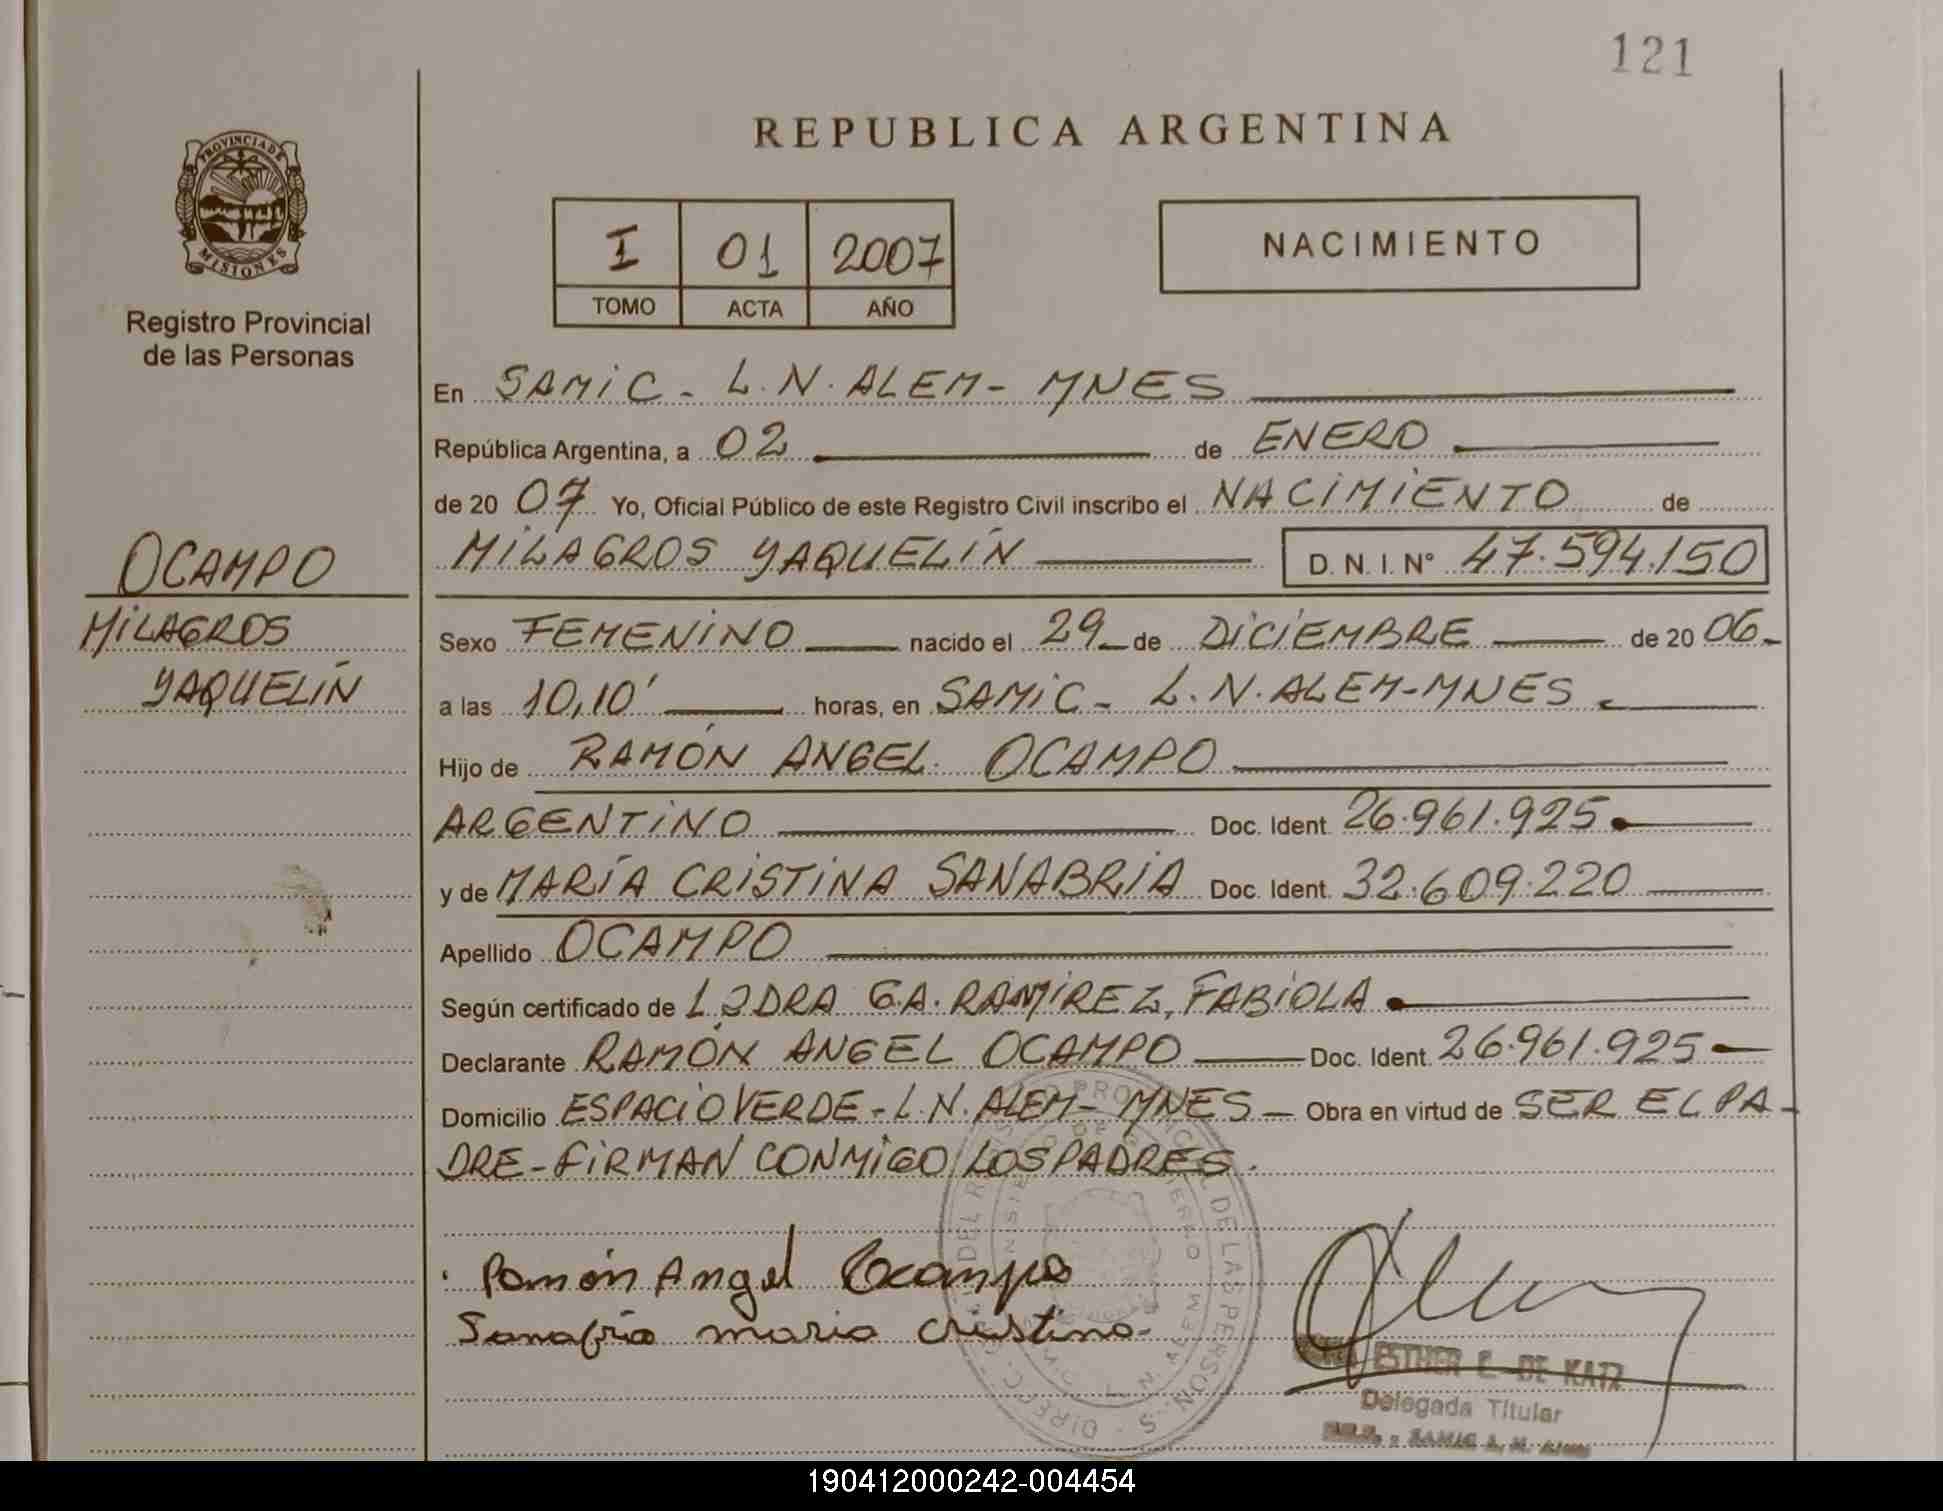 121
REPUBLICA ARGENTINA
PROVINCIA DE
MISIONES
Registro Provincial
de las Personas
I 01 2007
TOMO ACTA AÑO
NACIMIENTO
En SAMIC - L.N. ALEM - MNES
República Argentina, a 02 de ENERO
de 20 07 Yo, Oficial Público de este Registro Civil inscribo el NACIMIENTO de
MILAGROS YAQUELÍN D. N. I. N° 47.594.150
OCAMPO
MILAGROS
YAQUELÍN
Sexo FEMENINO nacido el 29 de DICIEMBRE de 20 06.-
a las 10,10' horas, en SAMIC - L.N. ALEM - MNES
Hijo de RAMÓN ANGEL OCAMPO
ARGENTINO Doc. Ident. 26.961.925
y de MARÍA CRISTINA SANABRIA Doc. Ident. 32.609.220
Apellido OCAMPO
Según certificado de DRA G.A. RAMIREZ, FABIOLA
Declarante RAMÓN ANGEL OCAMPO Doc. Ident. 26.961.925
Domicilio ESPACIO VERDE - L.N. ALEM - MNES - Obra en virtud de SER EL PA-
DRE - FIRMAN CONMIGO LOS PADRES.
Ramón Angel Ocampo
Sanabria maria cristina
ESTHER C. DE KATZ
Delegada Titular
190412000242-004454